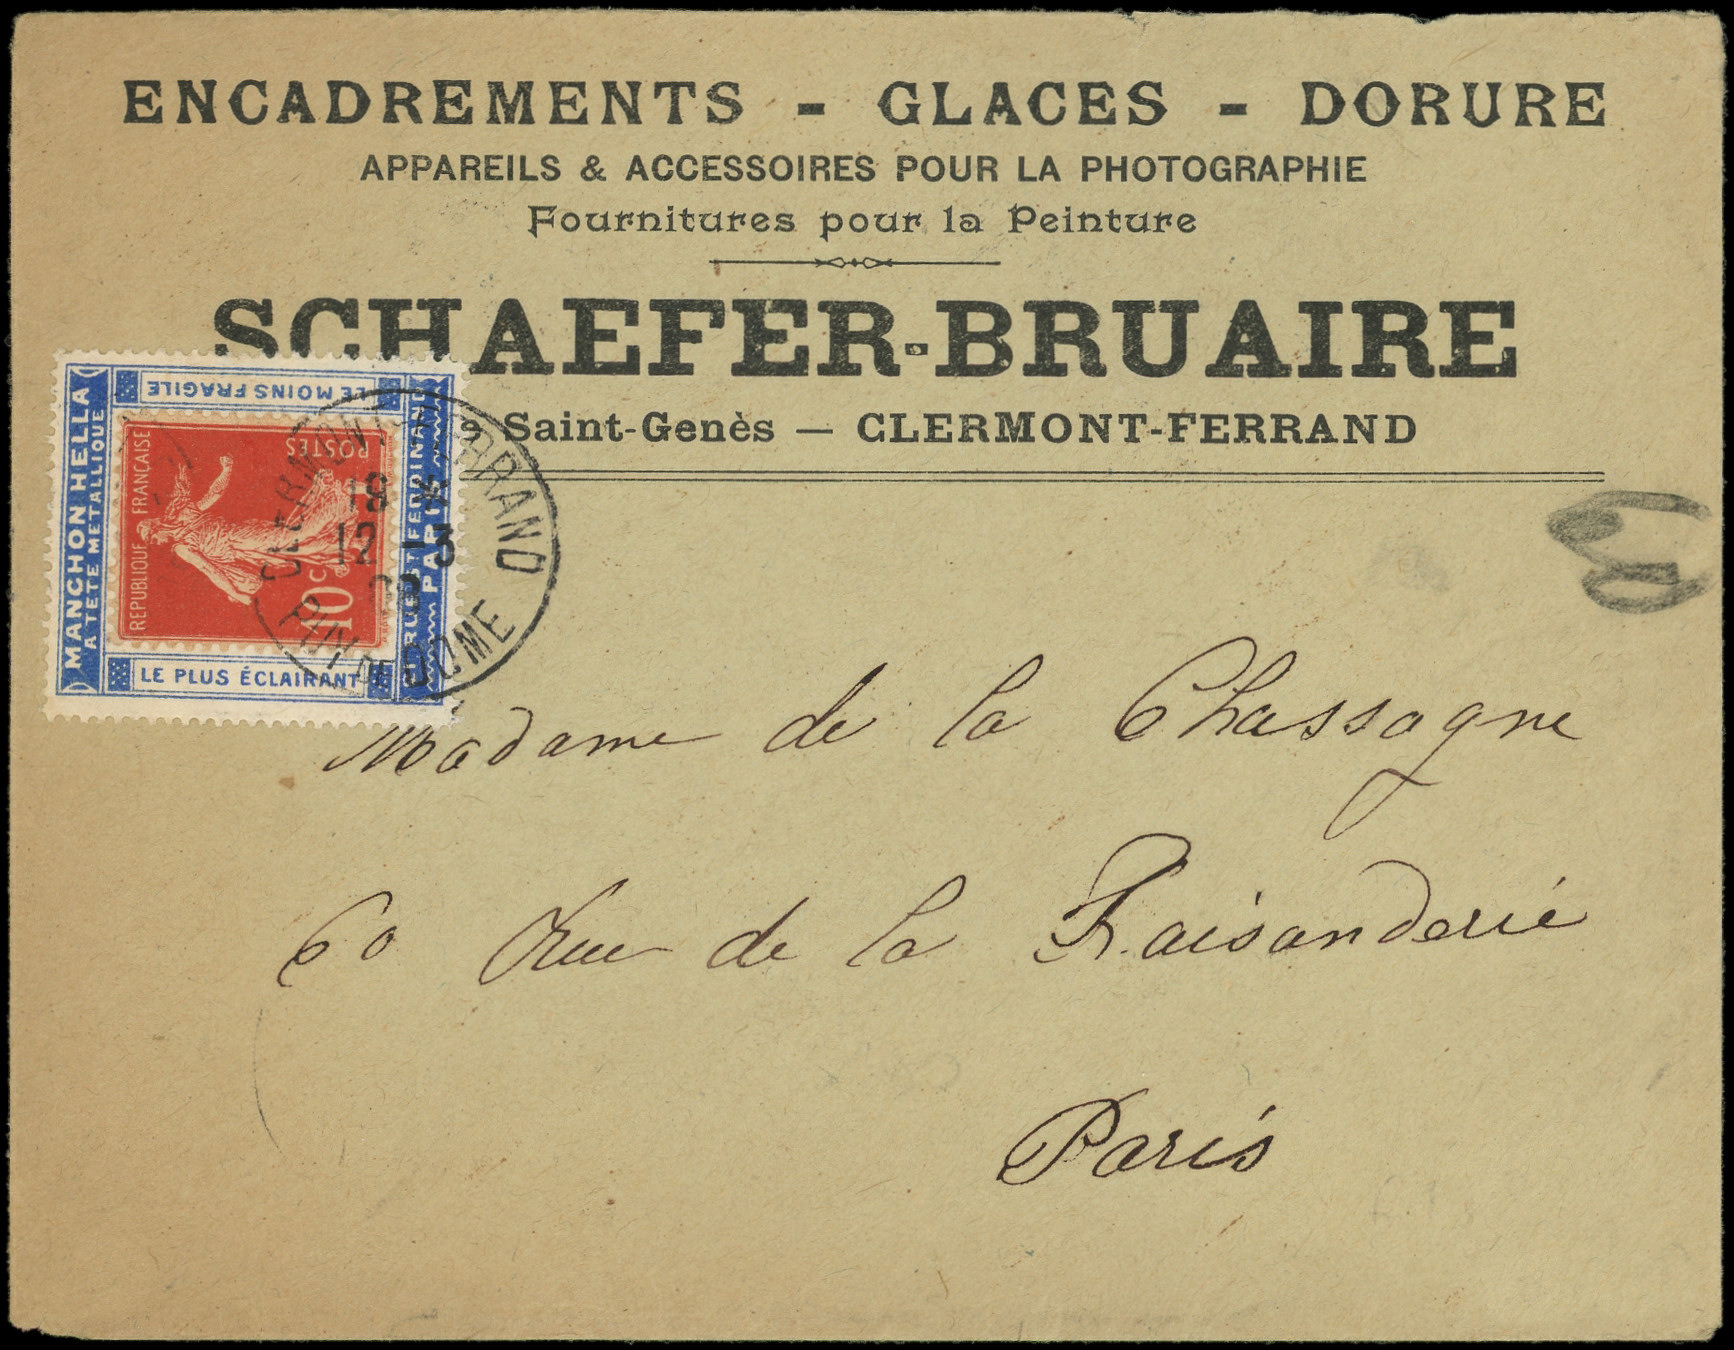 ENCADREMENTS - GLACES - DORURE
APPAREILS & ACCESSOIRES POUR LA PHOTOGRAPHIE
Fournitures pour la Peinture
SCHAEFER-BRUAIRE
Saint-Genès — CLERMONT-FERRAND
MANCHON HELLA
A TETE METALLIQUE
LE MOINS FRAGILE
LE PLUS ÉCLAIRANT
RUE ST FERDINAND
PARIS
REPUBLIQUE FRANÇAISE
POSTES
10 c
CLERMONT-FERRAND
18
12 -3
PUY DE DOME
Madame de la Chassagne
60 Rue de la Faisanderie
Paris